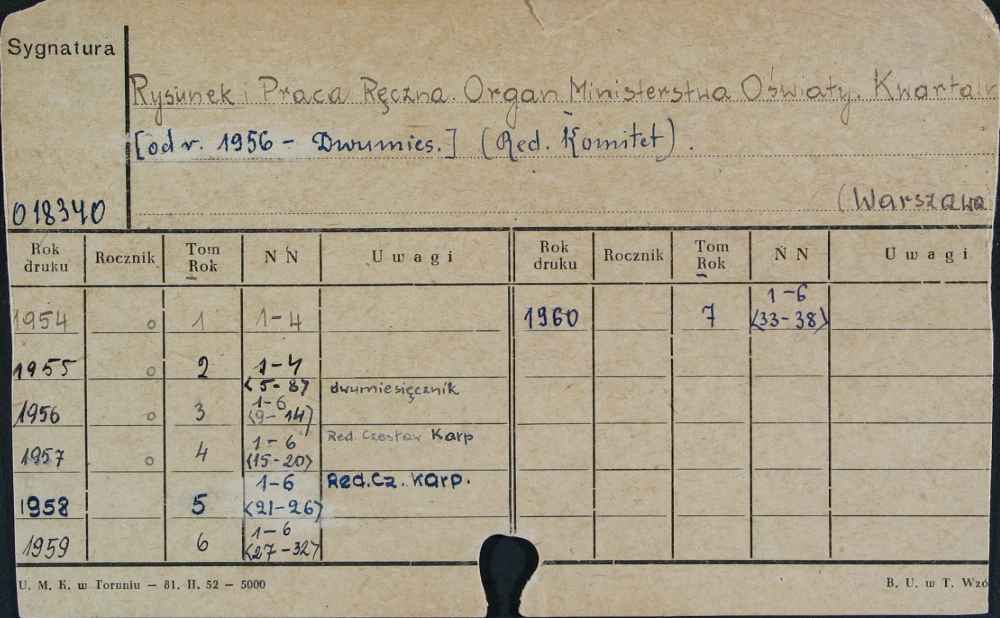 Sygnatura
Rysunek i Praca Ręczna. Organ Ministerstwa Oświaty. Kwartaln
[od r. 1956 – Dwumies.] (Red. Komitet).
018340
(Warszawa
Rok druku Rocznik Tom Rok N N Uwagi Rok druku Rocznik Tom Rok N N Uwagi
1954 o 1 1–4 1960 7 1–6 <33–38>
1955 o 2 1–4 <5–8>
1956 o 3 1–6 <9–14> dwumiesięcznik
1957 o 4 1–6 <15–20> Red. Czesław Karp
1958 5 1–6 <21–26> Red. Cz. Karp.
1959 6 1–6 <27–32>
U. M. K. w Toruniu – 81. II. 52 – 5000 B. U. w T. Wzó